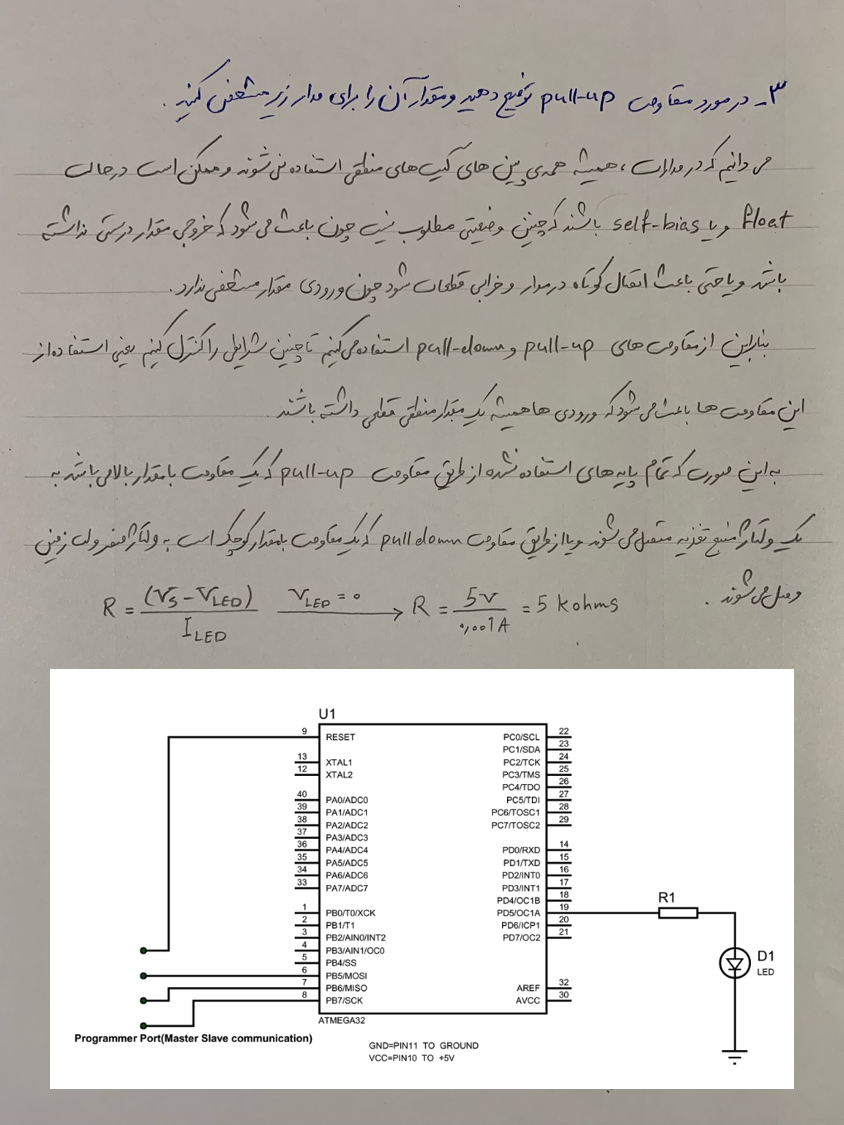 ۳- در مورد مقاومت pull-up توضیح دهید و مقدار آن را برای مدار زیر مشخص کنید.
می دانیم که در مدارات، همیشه همه‌ی پین های گیت های منطقی استفاده نمی شوند و ممکن است در حالت
float و یا self-bias باشند که چنین وضعیتی مطلوب نیست چون باعث می شود که خروجی مقدار درستی نداشته
باشد و یا حتی باعث اتصال کوتاه در مدار و خرابی قطعات شود چون ورودی مقدار مشخصی ندارد.
بنابراین از مقاومت های pull-up و pull-down استفاده می کنیم تا چنین شرایطی را کنترل کنیم یعنی استفاده از
این مقاومت ها باعث می شود که ورودی ها همیشه یک مقدار منطقی قطعی داشته باشند.
به این صورت که تمام پایه های استفاده نشده از طریق مقاومت pull-up که یک مقاومت با مقدار بالا می باشد به
یک ولتاژ منبع تغذیه متصل می شوند و یا از طریق مقاومت pull down که یک مقاومت با مقدار کوچک است به ولتاژ صفر ولت زمین
وصل می شوند.
R = (VS - VLED) / ILED   VLED = 0 → R = 5V / 0,001A = 5 kohms
U1
9 RESET
13 XTAL1
12 XTAL2
40 PA0/ADC0
39 PA1/ADC1
38 PA2/ADC2
37 PA3/ADC3
36 PA4/ADC4
35 PA5/ADC5
34 PA6/ADC6
33 PA7/ADC7
1 PB0/T0/XCK
2 PB1/T1
3 PB2/AIN0/INT2
4 PB3/AIN1/OC0
5 PB4/SS
6 PB5/MOSI
7 PB6/MISO
8 PB7/SCK
PC0/SCL 22
PC1/SDA 23
PC2/TCK 24
PC3/TMS 25
PC4/TDO 26
PC5/TDI 27
PC6/TOSC1 28
PC7/TOSC2 29
PD0/RXD 14
PD1/TXD 15
PD2/INT0 16
PD3/INT1 17
PD4/OC1B 18
PD5/OC1A 19
PD6/ICP1 20
PD7/OC2 21
AREF 32
AVCC 30
R1
D1
LED
ATMEGA32
Programmer Port(Master Slave communication)
GND=PIN11 TO GROUND
VCC=PIN10 TO +5V